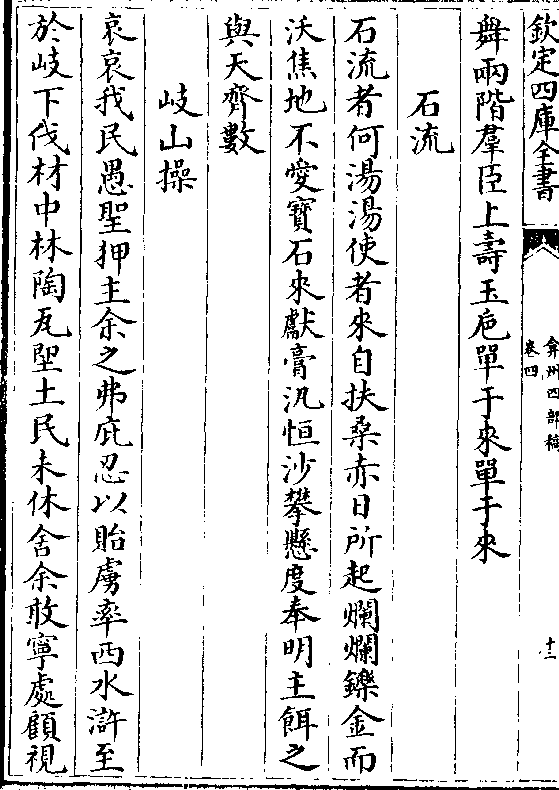 欽定四庫全書
弇州四部稿
卷四
十三
舞兩階羣臣上壽玉巵單于來單于來
石流
石流者何湯湯使者來自扶桑赤日所起爛爛鑠金而
沃焦地不愛寶石來獻膏汎恒沙攀懸度奉明主餌之
與天齊數
岐山操
哀哀我民愚聖狎主余之弗庇忍以貽虜率西水滸至
於岐下伐材中林陶瓦堲土民未休舍余敢寧處顧視